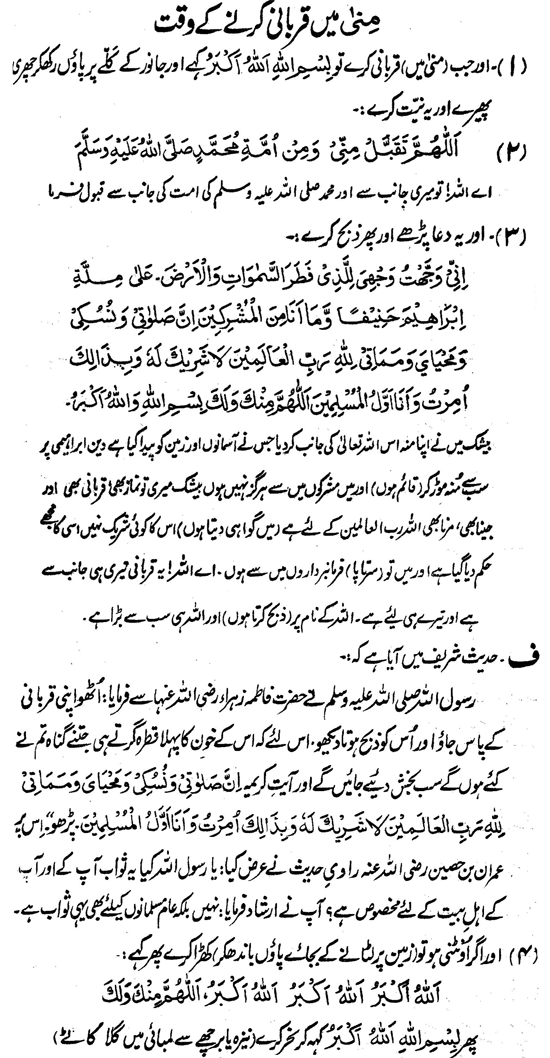 مِنٰی میں قربانی کرنے کے وقت
(۱)۔ اور جب (منیٰ میں) قربانی کرے تو بِسْمِ اللهِ اَللهُ اَكْبَرُ کہے اور جانور کے کلّے پر پاؤں رکھکر چھری
پھیرے اور یہ نیّت کرے:۔
(۲) اَللّٰهُمَّ تَقَبَّلْ مِنِّیْ وَمِنْ اُمَّةِ مُحَمَّدٍ صَلَّی اللهُ عَلَیْهِ وَسَلَّمَ
اے اللہ! تو میری جانب سے اور محمد صلی اللہ علیہ وسلم کی امت کی جانب سے قبول فرما
(۳)۔ اور یہ دعا پڑھے اور پھر ذبح کرے:۔
اِنِّیْ وَجَّهْتُ وَجْهِیَ لِلَّذِیْ فَطَرَ السَّمٰوَاتِ وَالْاَرْضَ۔ عَلٰی مِلَّةِ
اِبْرَاهِیْمَ حَنِیْفًا وَّمَا اَنَا مِنَ الْمُشْرِکِیْنَ اِنَّ صَلٰوتِیْ وَنُسُکِیْ
وَمَحْیَایَ وَمَمَاتِیْ لِلّٰهِ رَبِّ الْعَالَمِیْنَ لَا شَرِیْكَ لَهٗ وَبِذَالِكَ
اُمِرْتُ وَاَنَا اَوَّلُ الْمُسْلِمِیْنَ اَللّٰهُمَّ مِنْكَ وَلَكَ بِسْمِ اللهِ وَاللهُ اَكْبَرُ۔
بیشک میں نے اپنا منہ اس اللہ تعالیٰ کی جانب کر دیا جس نے آسمانوں اور زمین کو پیدا کیا ہے دین ابراہیمی پر
سب سے مُنہ موڑ کر (قائم ہوں) اور میں مشرکوں میں سے ہرگز نہیں ہوں بیشک میری تو نماز بھی، قربانی بھی اور
جینا بھی، مرنا بھی اللہ رب العالمین کے لئے ہے (میں گواہی دیتا ہوں) اس کا کوئی شریک نہیں اسی کا مجھے
حکم دیا گیا ہے اور میں تو (سرتاپا) فرمانبرداروں میں سے ہوں۔ اے اللہ! یہ قربانی تیری ہی جانب سے
ہے اور تیرے ہی لیے ہے۔ اللہ کے نام پر (ذبح کرتا ہوں) اور اللہ ہی سب سے بڑا ہے۔
ف۔ حدیث شریف میں آیا ہے کہ:۔
رسول اللہ صلی اللہ علیہ وسلم نے حضرت فاطمہ زہراء رضی اللہ عنہا سے فرمایا: اُٹھو اپنی قربانی
کے پاس جاؤ اور اُس کو ذبح ہوتا دیکھو۔ اس لئے کہ اس کے خون کا پہلا قطرہ گرتے ہی جتنے گناہ تم نے
کئے ہوں گے سب بخش دیئے جائیں گے اور آیتِ کریمہ اِنَّ صَلٰوتِیْ وَنُسُکِیْ وَمَحْیَایَ وَمَمَاتِیْ
لِلّٰهِ رَبِّ الْعَالَمِیْنَ لَا شَرِیْكَ لَهٗ وَبِذَالِكَ اُمِرْتُ وَاَنَا اَوَّلُ الْمُسْلِمِیْنَ۔ پڑھو“ اِس پر
عمران بن حصین رضی اللہ عنہ راویِ حدیث نے عرض کیا: یا رسول اللہ کیا یہ ثواب آپ کے اور آپ
کے اہلِ بیت کے لئے مخصوص ہے؟ آپ نے ارشاد فرمایا: نہیں بلکہ عام مسلمانوں کیلئے بھی یہی ثواب ہے۔
(۴) اور اگر اُونٹنی ہو تو زمین پر لٹانے کے بجائے پاؤں باندھکر کھڑا کرے پھر کہے:
اَللهُ اَكْبَرُ اَللهُ اَكْبَرُ اَللهُ اَكْبَرُ، اَللّٰهُمَّ مِنْكَ وَلَكَ
پھر بِسْمِ اللهِ اَللهُ اَكْبَرُ کہہ کر نحر کرے (نیزہ یا برچھے سے لمبائی میں گلا کاٹے)